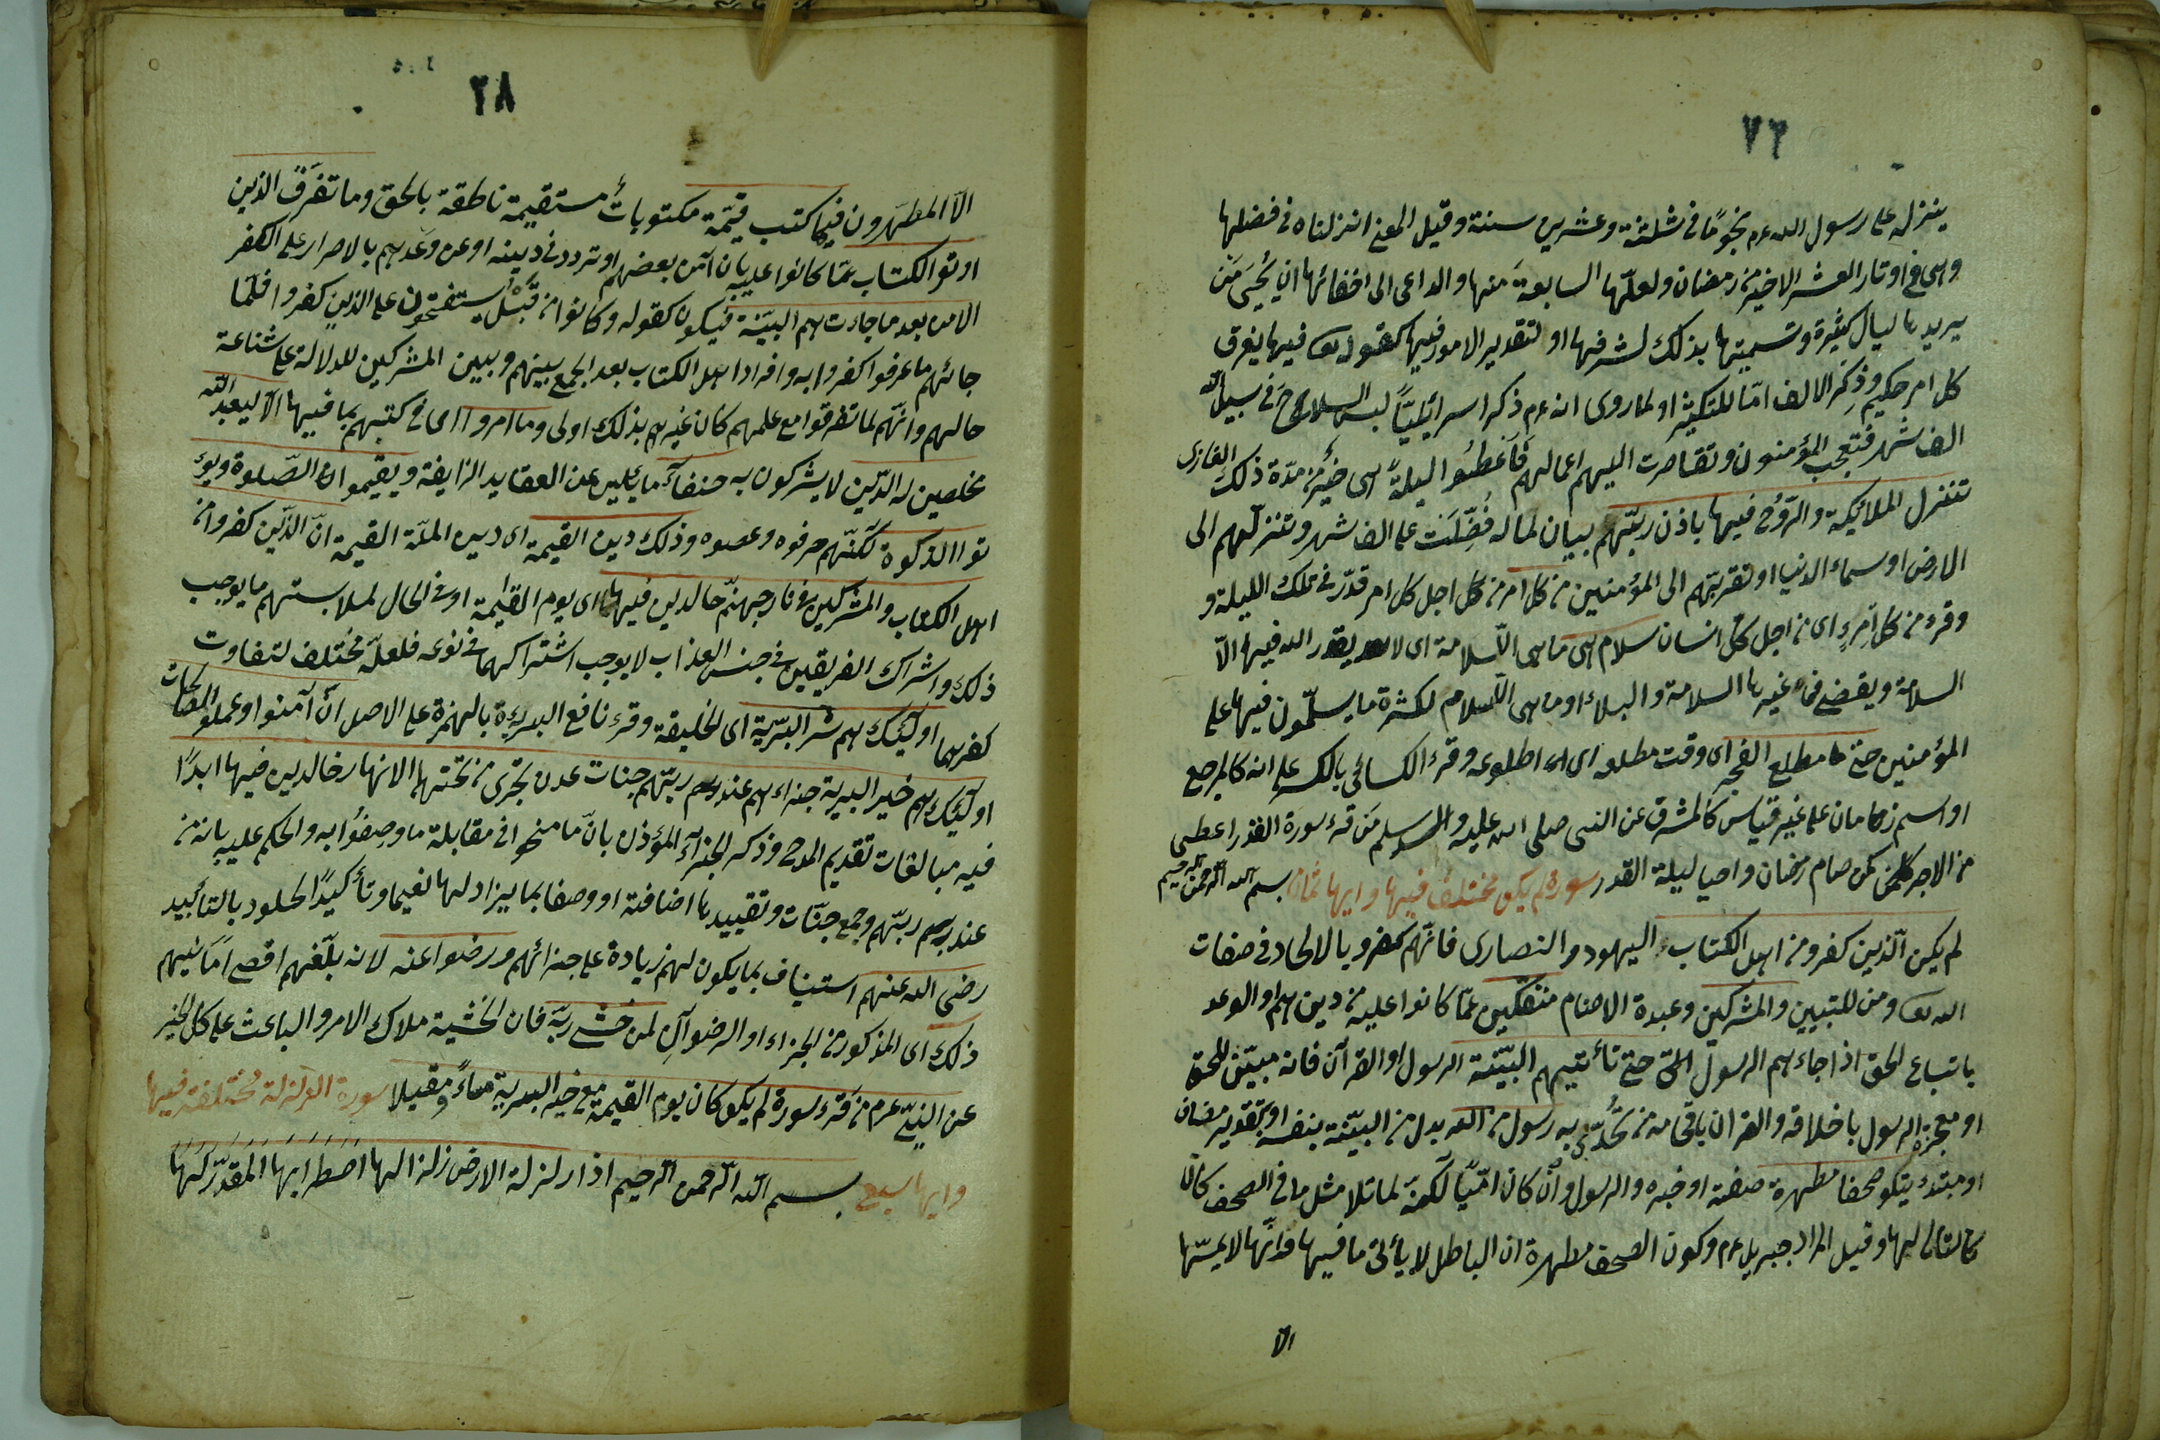 ٧٦
ينزله على رسول الله عم نجومًا في ثلثة وعشرين سنة وقيل المعنى انزلناه في فضلها
وهى في اوتار العشر الاخير من رمضان ولعلّها السابعة منها والداعى الى اخفائها ان يُحيىَ مَن
يريدها ليال كثيرة وتسميتها بذلك لشرفها او لتقدير الامور فيها كقوله تعا فيها يفرق
كل امر حكيم وذِكرُ الالف امّا للتكثير او لما روى انه عم ذكر اسرائيليّاً لبس السلاح في سبيل الله
الف شهر فتعجب المؤمنون وتقاصرت اليهم اعمالهم فَاعْطُوا ليلةً هى خيرٌ من مدّة ذلك الغازى
تنزل الملائكة والرّوُح فيها باذن ربّهم بيان لما له فُضِّلَتْ على الف شهر وتنزلهم الى
الارض او سماء الدنيا او تقربّهم الى المؤمنين من كل امر من كل اجل كل امر قدّر في تلك الليلة و
وقرء من كل اَمرِءٍ اى من اجل كل انسان سلام هى ما هى الّا سلامة اى لا يقدر الله فيها الّا
السلامة ويقضى في غيرها السلامة والبلاء او ما هى الّا سلام لكثرة ما يسلّمون فيها على
المؤمنين حتى مطلع الفجر اى وقت مطلعه اى طلوعه وقرء الكسائى بالكسر على انه كالمرجع
او اسم زمان على غير قياس كالمشرق عن النبى صلى الله عليه وسلم مَن قرء سورة القدر اعطى
من الاجر كمن صام رمضان واحيا ليلة القدر سورة لم يكن مختلف فيها وايها ثمان بسم الله الرحمن الرحيم
لم يكن الّذين كفروا من اهل الكتاب اليهود والنصارى فانّهم كفروا بالالحاد في صفات
الله تعا ومن للتبيين والمشركين وعبدة الاصنام منفكّين عمّا كانوا عليه من دينهم او الوعد
باتباع الحق اذا جاءهم الرسول حتى تأتيهم البيّنة الرسول او القرآن فانه مبيّن للحق
او معجزة الرسول باخلاقه والقران بافحامه من تحُدّى به رسول من الله بدل من البيّنة بنفسه او بتقدير مضاف
او مبتدء يتلو صحفا مطهرة صفته او خبره والرسول وان كان امّيًّا لكنه لما تلا مثل ما في الصحف كان
كالتالى لها وقيل المراد جبريل عم وكون الصحف مطهرة ان الباطل لا يأتى ما فيها فانّها لا يمسّها
الا
٢٨
الّا المطهّرون فيها كتب قيّمة مكتوبات مستقيمة ناطقة بالحق وما تفرّق الذين
اوتوا الكتاب عمّا كانوا عليه بان آمن بعضهم او تردد في دينه او عن وعدهم بالاصرار على الكفر
الا من بعد ما جاءتهم البيّنة فيكون كقوله وكانوا من قبل يستفتحون على الذين كفروا فلمّا
جائهم ما عرفوا كفروا به وافراد اهل الكتاب بعد الجمع بينهم وبين المشركين للدلالة على شناعة
حالهم وانّهم لما تفرقوا مع علمهم كان غيرهم بذلك اولى وما امروا اى في كتبهم بما فيها الّا ليعبد الله
مخلصين له الدّين لا يشركون به حنفآءَ مايلين عن العقايد الزايفة ويقيموا الصّلوة ويوء
توا الزكوة لكنّهم حرفوه وعصوه وذلك دين القيمة اى دين الملّة القيمة انّ الّذين كفروا من
اهل الكتاب والمشركين في نار جهنّم خالدين فيها اى يوم القيمة او في الحال لملابستهم ما يوجب
ذلك واشراك الفريقين في جنس العذاب لا يوجب اشتراكهما في نوعه فلعلّه مختلف لتفاوت
كفرهما اولئك هم شر البريّة اى الخليقة وقرء نافع البريءة بالهمزة على الاصل انّ آمنوا وعملو الصالحات
اولئك هم خير البرية جزاءهم عند ربّهم جنات عدن تجرى من تحتها الانهار خالدين فيها ابدًا
فيه مبالغات تقديم المدح وذكر الجزآء المؤذن بانّ ما منحوا في مقابلة ما وصفوُا به والحكم عليه بانه من
عند ربّهم وجمع جنّات وتقييدها اضافة او وصفا بما يزاد لها نعيما وتأكيدًا الخلود بالتأبيد
رضى الله عنهم استيناف بما يكون لهم زيادة على جزائهم ورضوا عنه لانه بلّغهم اقصى امانيهم
ذلك اى المذكور من الجزاء او الرضوان لمن خشى ربّه فان الخشية ملاك الامر والباعث على كل خير
عن النبّى عم من قرء سورة لم يكن كان يوم القيمة مع خير البرية مساءً ومقيلا سورة الزلزلة مختلفة فيها
وايها سبع بسم الله الرحمن الرحيم اذا زلزلة الارض زلزالها اضطرابها المقدّر لها